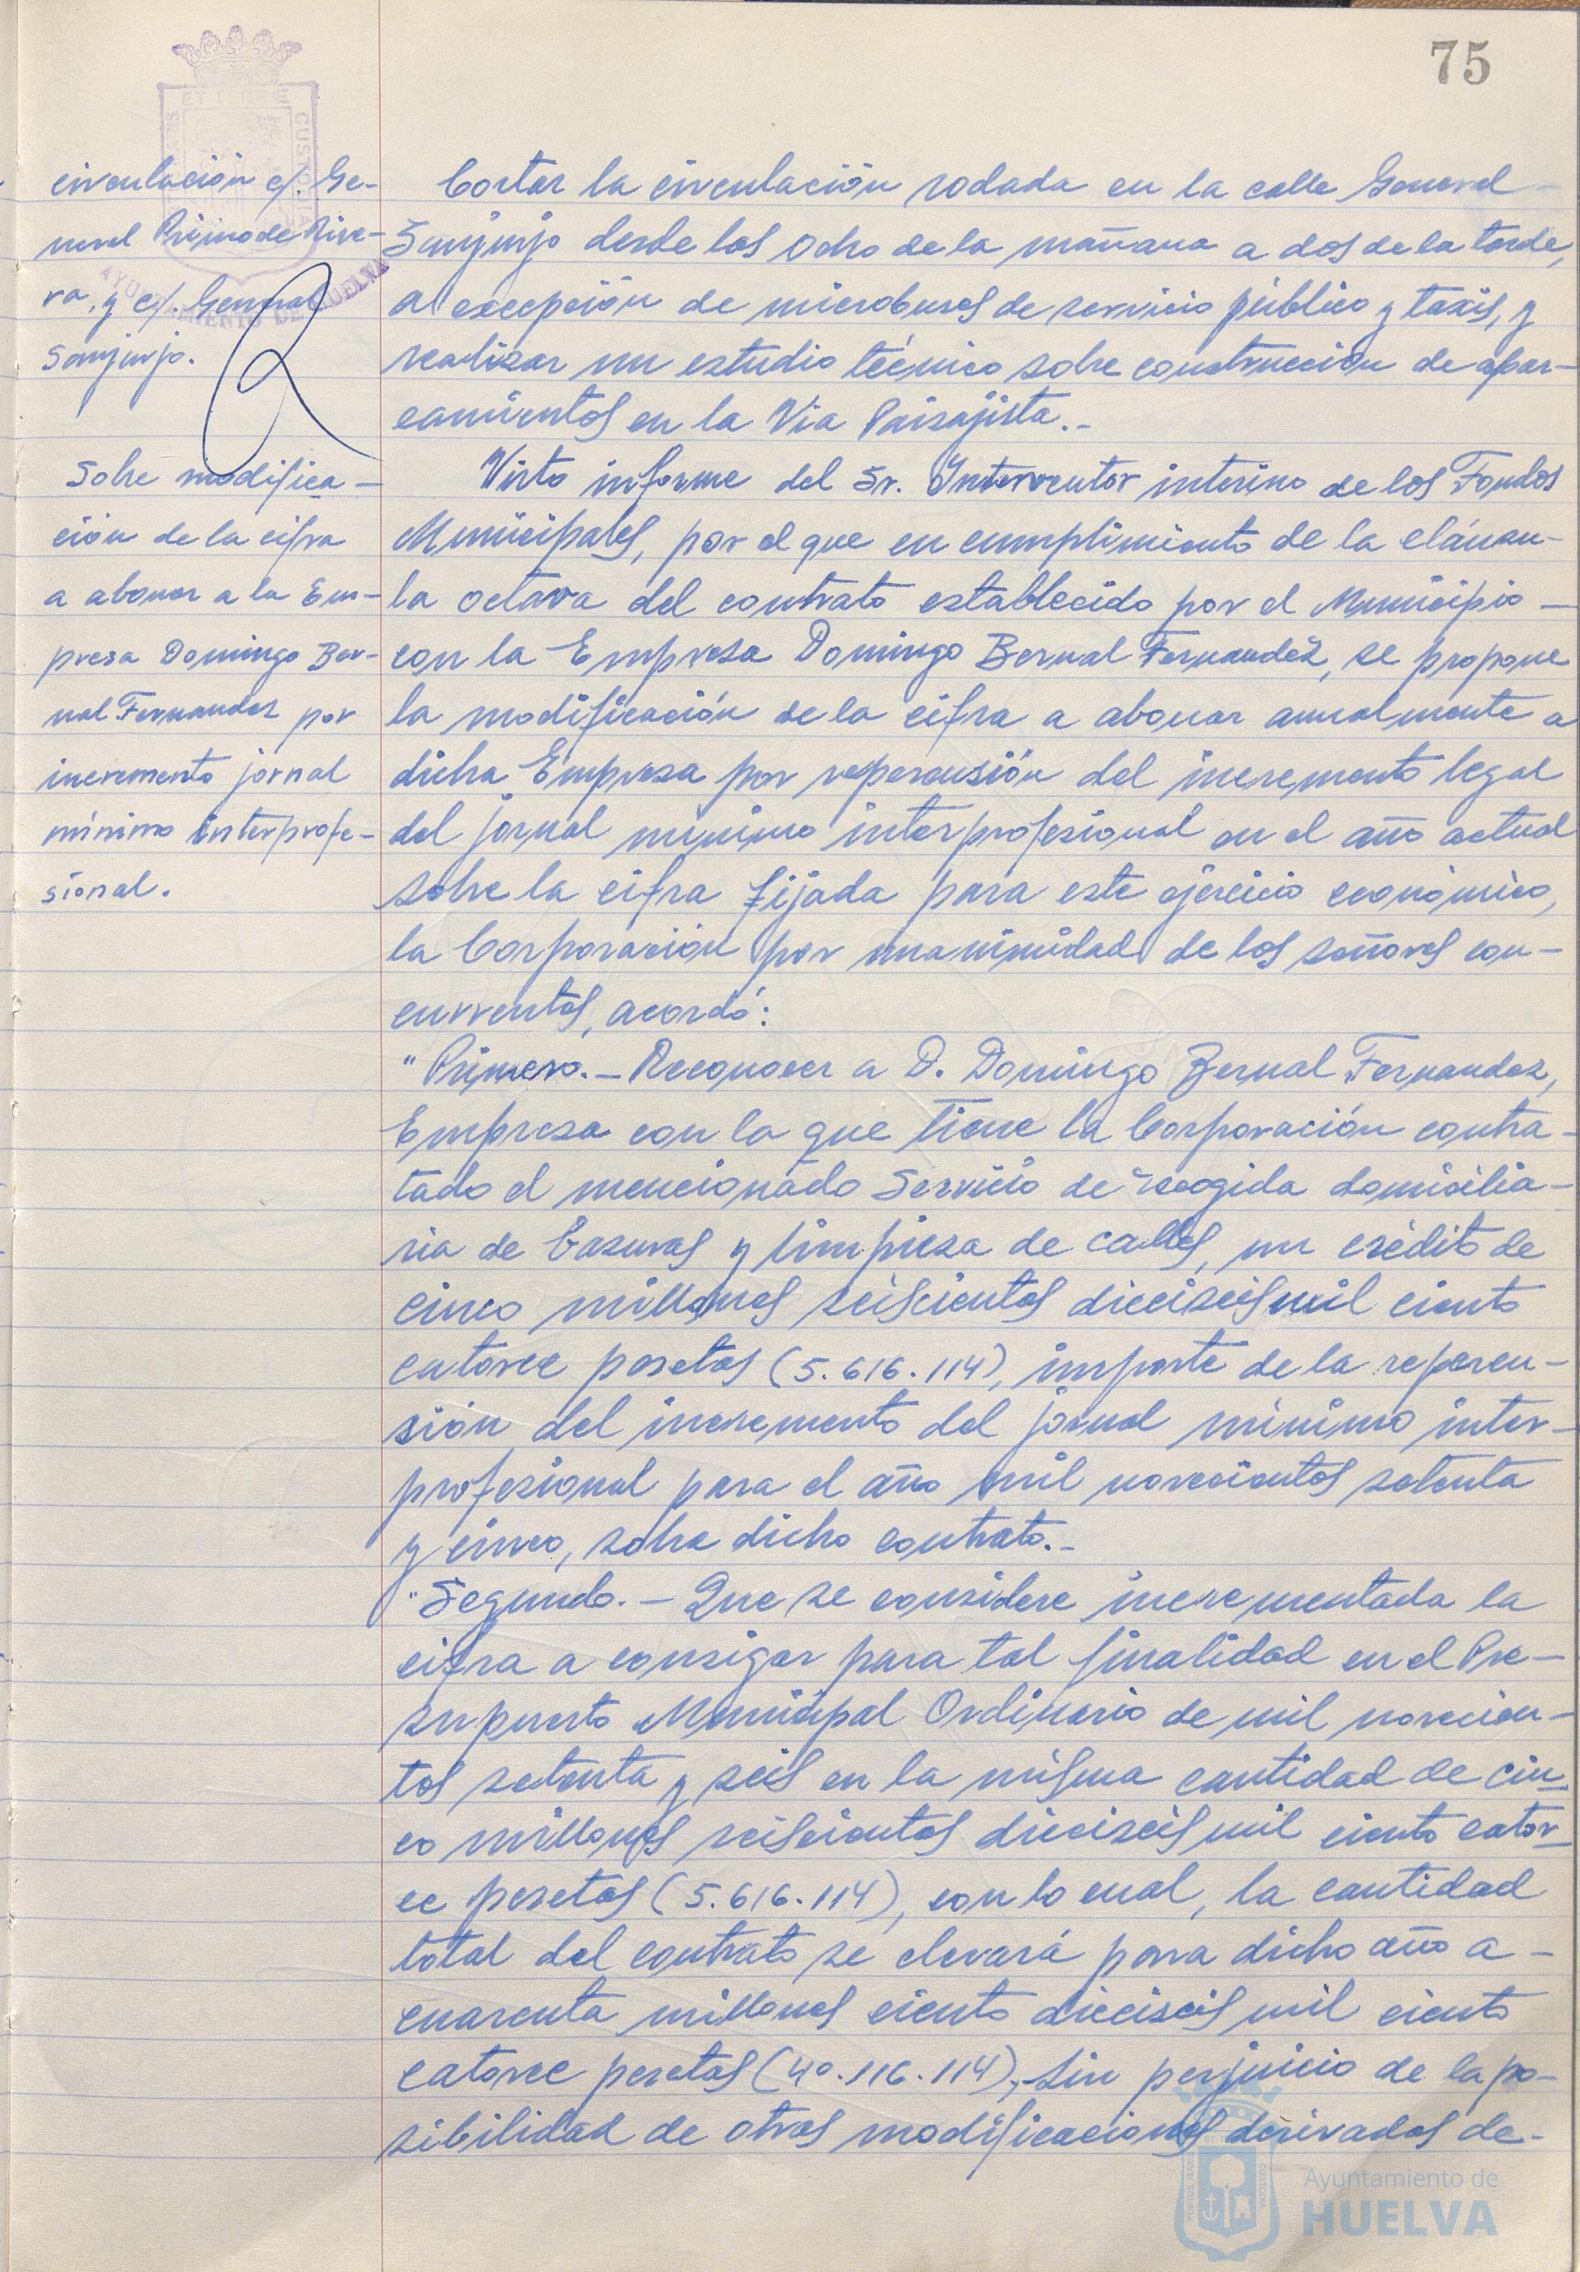 75
circulación c/. Ge-
neral Primo de Rive-
ra, y c/. General
Sanjurjo.
Cortar la circulación rodada en la calle General
Sanjurjo desde las ocho de la mañana a dos de la tarde,
a excepción de microbuses de servicio público y taxis, y
realizar un estudio técnico sobre construcción de apar-
camientos en la Via Paisajista.-
Sobre modifica-
ción de la cifra
a abonar a la Em-
presa Domingo Ber-
nal Fernandez por
incremento jornal
mínimo interprofe-
sional.
Visto informe del Sr. Interventor interino de los Fondos
Municipales, por el que en cumplimiento de la cláusu-
la octava del contrato establecido por el Municipio -
con la Empresa Domingo Bernal Fernandez, se propone
la modificación de la cifra a abonar anualmente a
dicha Empresa por repercusión del incremento legal
del jornal mínimo interprofesional en el año actual
sobre la cifra fijada para este ejercicio económico,
la Corporación por unanimidad de los señores con-
currentes, acordó:
"Primero.- Reconocer a D. Domingo Bernal Fernandez,
Empresa con la que tiene la Corporación contra-
tado el mencionado Servicio de recogida domicilia-
ria de basuras y limpieza de calles, un crédito de
cinco millones seiscientos dieciseis mil ciento
catorce pesetas (5.616.114), importe de la repercu-
sión del incremento del jornal mínimo inter-
profesional para el año mil novecientos setenta
y cinco, sobre dicho contrato.-
"Segundo.- Que se considere incrementada la
cifra a consigar para tal finalidad en el Pre-
supuesto Municipal Ordinario de mil novecien-
tos setenta y seis en la misma cantidad de cin-
co millones seiscientos dieciseis mil ciento cator-
ce pesetas (5.616.114), con lo cual, la cantidad
total del contrato se elevará para dicho año a -
cuarenta millones ciento dieciseis mil ciento
catorce pesetas (40.116.114), sin perjuicio de la po-
sibilidad de otras modificaciones derivadas de-
AYUNTAMIENTO DE HUELVA
Ayuntamiento de
HUELVA